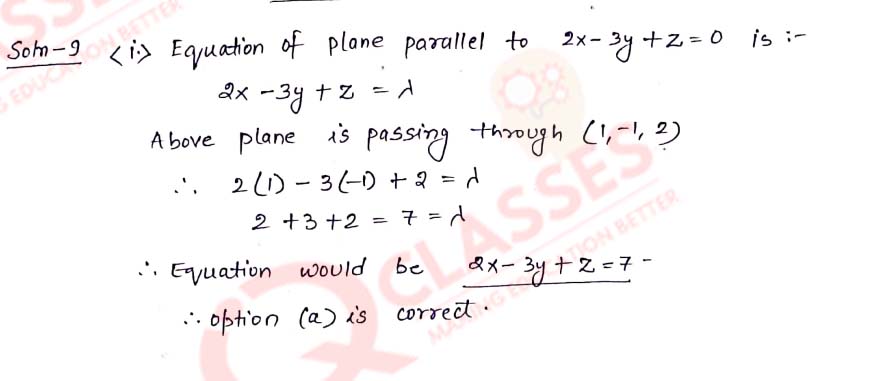 Soln-9 <i> Equation of plane parallel to 2x - 3y + z = 0 is :-
2x - 3y + z = λ
Above plane is passing through (1, -1, 2)
∴ 2(1) - 3(-1) + 2 = λ
2 + 3 + 2 = 7 = λ
∴ Equation would be 2x - 3y + z = 7 -
∴ option (a) is correct.
CLASSES
MAKING EDUCATION BETTER